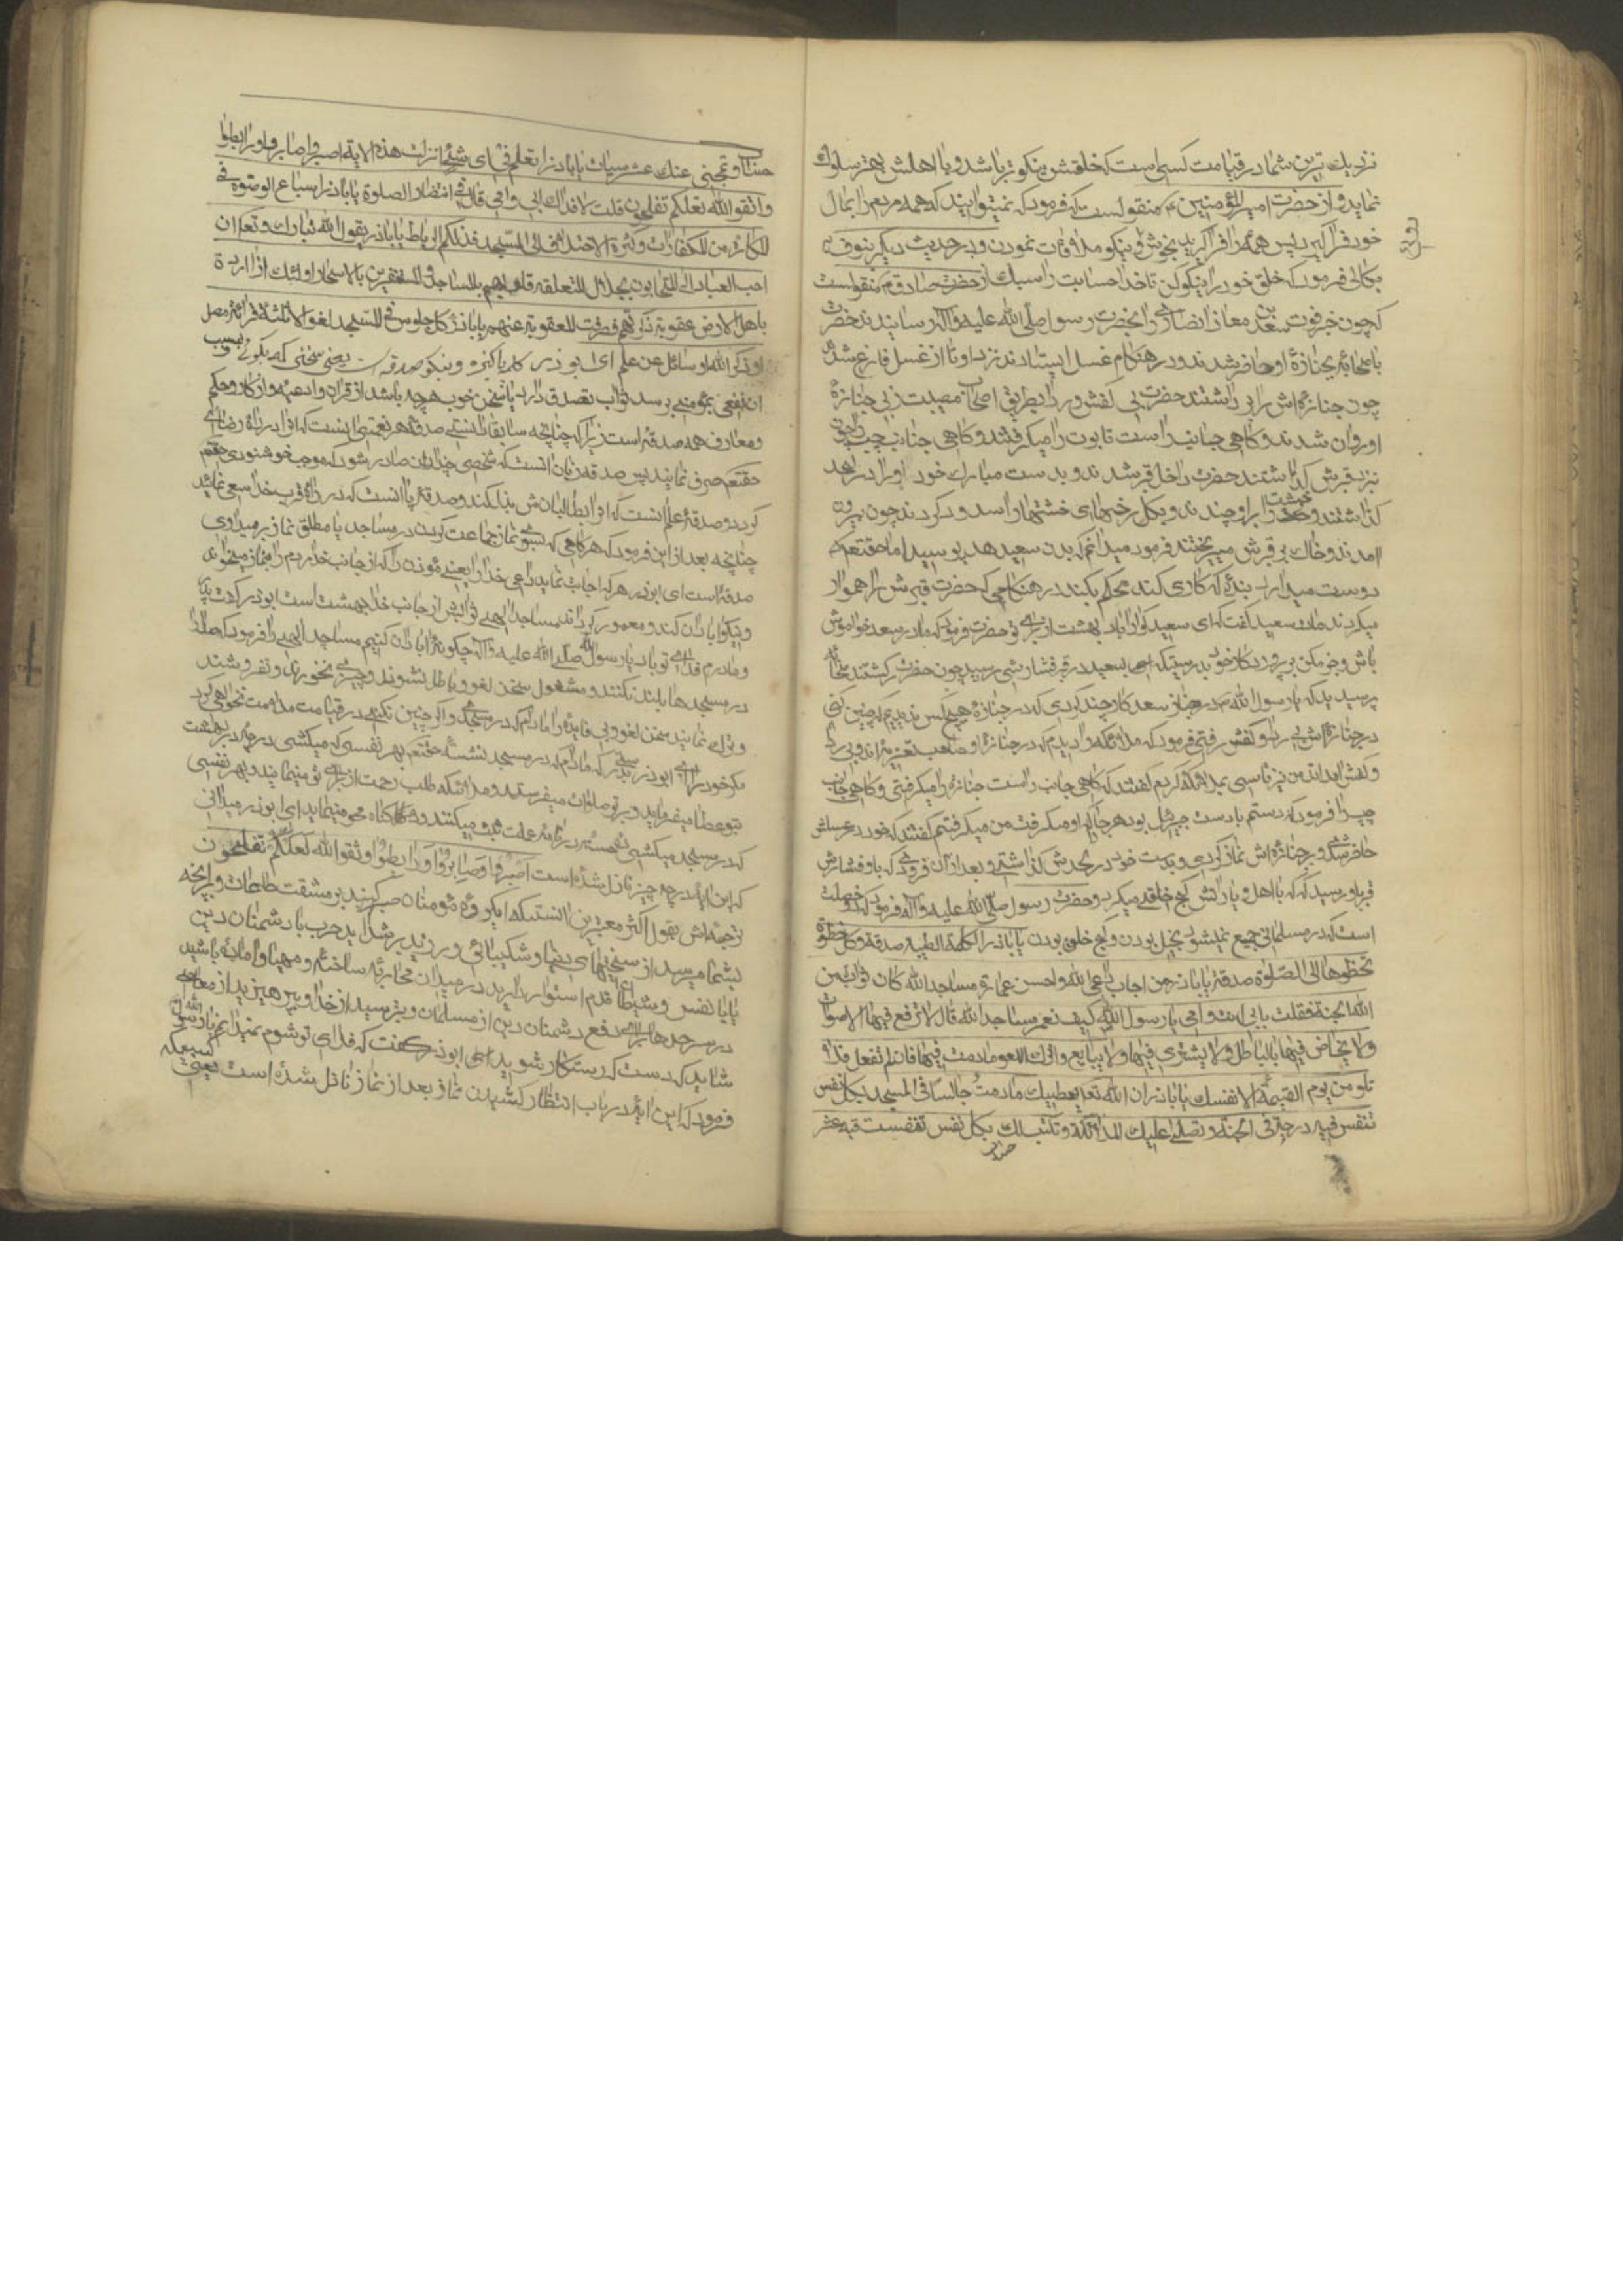 نزدیك ترین شما در قیامت کسی است که خلقش نیکوتر باشد و با اهلش بهتر سلوك
نماید و از حضرت امیر المؤمنین ع منقولست که فرمود که نمیتوانید که همه مردم را بمال
خود فرا گیرید پس همه را فرا گیرید بخوش رویی و نیکو ملاقات نمودن و در حدیث دیگر بنوف
بکالی فرمود که خلق خود را نیکو کن تا خدا حسابت را سبك از حضرت صادق م منقولست
که چون خبر فوت سعد بن معاذ انصاری را بحضرت رسول صلی الله علیه وآله رسانیدند حضرت
با صحابه بجنازهٔ او حاضر شدند و در هنگام غسل ایستادند نزد او تا از غسل فارغ شدند
چون جنازه اش را برداشتند حضرت بی کفش و ردا بطریق اصحاب مصیبت در پی جنازهٔ
او روان شدند و گاهی جانب راست تابوت را میگرفتند و گاهی جانب چپ را چون
بنزد قبرش گذاشتند حضرت داخل قبر شدند و بدست مبارك خود او را در لحد
گذاشتند و خشت را بر او چیدند و بگل رخنهای خشتها را مسدود کردند چون بیرون
امدند و خاك بر قبرش میریختند فرمود میدانم که بدن سعید هد پوسید اما حقتعم
دوست میدارد بندهٔ که کاری کند محکم بکند در هنگامی که حضرت قبرش را هموار
میکردند مادر سعید گفت که ای سعید گوارا باد بهشت از برای تو حضرت فرمود که مادر سعد خواموش
باش و جزم مکن بر پروردگار خود بدرستیکه اسی بسعید در قبر فشار شی رسید چون حضرت برگشتند صحابه
پرسیدند که یا رسول الله م در جناز سعد کار چند کردی که در جنازهٔ هیچکس ندیدیم که چنین کنی
در جنازه اش بی ردا و کفش رفتی فرمود که ملائکه را دیدم که در جنازهٔ او صاحب تعزیه اند و بی ردا
و کفش امده اند من نیز تاسی بملائکه کردم گفتند که گاهی جانب راست جنازه را میگرفتی و گاهی جانب
چپ را فرمود که دستم با دست جبرئیل بود هر جا که او میگرفت من میگرفتم گفتند که خود در غسلش
حاضر شدی و بر جنازه اش نماز کردی و بدست خود در لحدش گذاشتی و بعد از آن فرمودی که باو فشارش
قبر او رسید که که با اهل و یارانش کج خلقی میکرد و حضرت رسول صلی الله علیه وآله فرمود که دو خصلت
است که در مسلمانی جمع نمیشود بخیل بودن و کج خلق بودن یا باذر الکلمة الطیبه صدقة و کل خطوة
تخطوها الی الصلوة صدقة یا باذر من اجاب داعی الله واحسن عمارة مساجد الله کان ثوابه من
الله الجنة فقلت بابی انت وامی یا رسول الله کیف نعمر مساجد الله قال لا ترفع فیها الاصوات
ولا یخاض فیها بالباطل ولا یشتری فیها ولا یبایع واترك اللغو مادمت فیها فان لم تفعل فلا
تلومن یوم القیمة الا نفسك یا باذر ان الله تعا یعطیك مادمت جالسا فی المسجد بکل نفس
تنفس فیه درجة فی الجنة و تصلی علیك الملائکة وتکتب لك بکل نفس تنفست فیه عشر
حسنات وتمحی عنك عشر سیئات یا باذر اتعلم فی ای شئ انزلت هذه الایة اصبروا صابروا ورابطوا
واتقو الله لعلکم تفلحون قلت لا فداك ابی وامی قال فی انتظار الصلوة یا باذر اسباغ الوضوء فی
المکاره من الکفارات وکثرة الاختلاف الی المسجد فذلکم الرباط یا باذر یقول الله تبارك وتعا ان
احب العباد الی المتحابون بجلالی المتعلقه قلوبهم بالمساجد والمستغفرین بالاسحار اولئك اذا اردت
باهل الارض عقوبة ذکرتهم فصرفت العقوبة عنهم یا باذر کل جلوس فی المسجد لغو الا ثلثة قراءة مصل
او ذکر الله او سائل عن علم ای ابوذر کلمه پاکیزه و نیکو صدقه است یعنی سخنی که بگوئی بسبب
ان نفعی بمؤمنی برسد ثواب تصدق دارد یا سخن خوب هر چه باشد از قران وادعیه و اذکار و حکم
ومعارف همه صدقه است زیرا که چنانچه سابقا دانستی صدقه هر نعمتی انست که انرا در راه رضای
حقتعم صرف نمایند پس صدقه زبان انست که سخنی چند از ان صادر شود که موجب خوشنودی حقتعم
گردد و صدقه علم انست که انرا بطالبانش بذل کنند و صدقه پا انست که در راه قرب خدا سعی نماید
چنانچه بعد از این فرمود که هر گامی که بسوی نماز جماعت کردن در مساجد یا مطلق نماز برمیداری
صدقه است ای ابوذر هر که اجابت نماید داعی خدا را یعنی مؤذن را که از جانب خدا مردم را بنماز میخواند
و نیکو ابادان کند و معمور گرداند مساجد الهی را ثوابش از جانب خدا بهشت است ابوذر گفت پدر
و مادرم فدای تو باد یا رسول الله صلی الله علیه وآله چگونه ابادان کنیم مساجد الهی را فرمود که صدا
در مسجدها بلند نکنند و مشغول سخن لغو و باطل نشوند و چیزی نخورند و نفروشند
و ترك نمایند سخن لغو و بی فایده را مادام که در مسجدی و اگر چنین نکنی در قیامت ملامت نخواهی کرد
مگر خود را ای ابوذر بدرستی که مادام که در مسجد نشستهٔ حقتعم بهر نفسی که میکشی درجهٔ در بهشت
بتو عطا میفرماید و بر تو صلوات میفرستند و ملائکه طلب رحمت از برای تو مینمایند و بهر نفسی
که در مسجد میکشی ده حسنه در نامهٔ عملت ثبت میکنند و ده گناه محو مینماید ای ابوذر میدانی
که این ایه در چه چیز نازل شده است اصبروا وصابروا ورابطوا واتقوا الله لعلکم تفلحون
ترجمه اش بقول اکثر مفسرین انستکه ای گروه مؤمنان صبر کنید بر مشقت طاعات و برانچه
بشما میرسد از سختیهای دنیا و شکیبائی ورزید بر شداید حرب با دشمنان دین
یا با نفس و شیطان قدم استوار دارید در میدان محاربه ساخته و مهیا و اماده باشید
در سرحدها برای دفع دشمنان دین از مسلمانان و بترسید از خدا و بپرهیزید از معاصی
شاید که دست که رستگار شوید ای ابوذر گفت که فدای تو شوم نمیدانم یا رسول الله
فرمود که این ایه در باب انتظار کشیدن نماز بعد از نماز نازل شده است یعنی